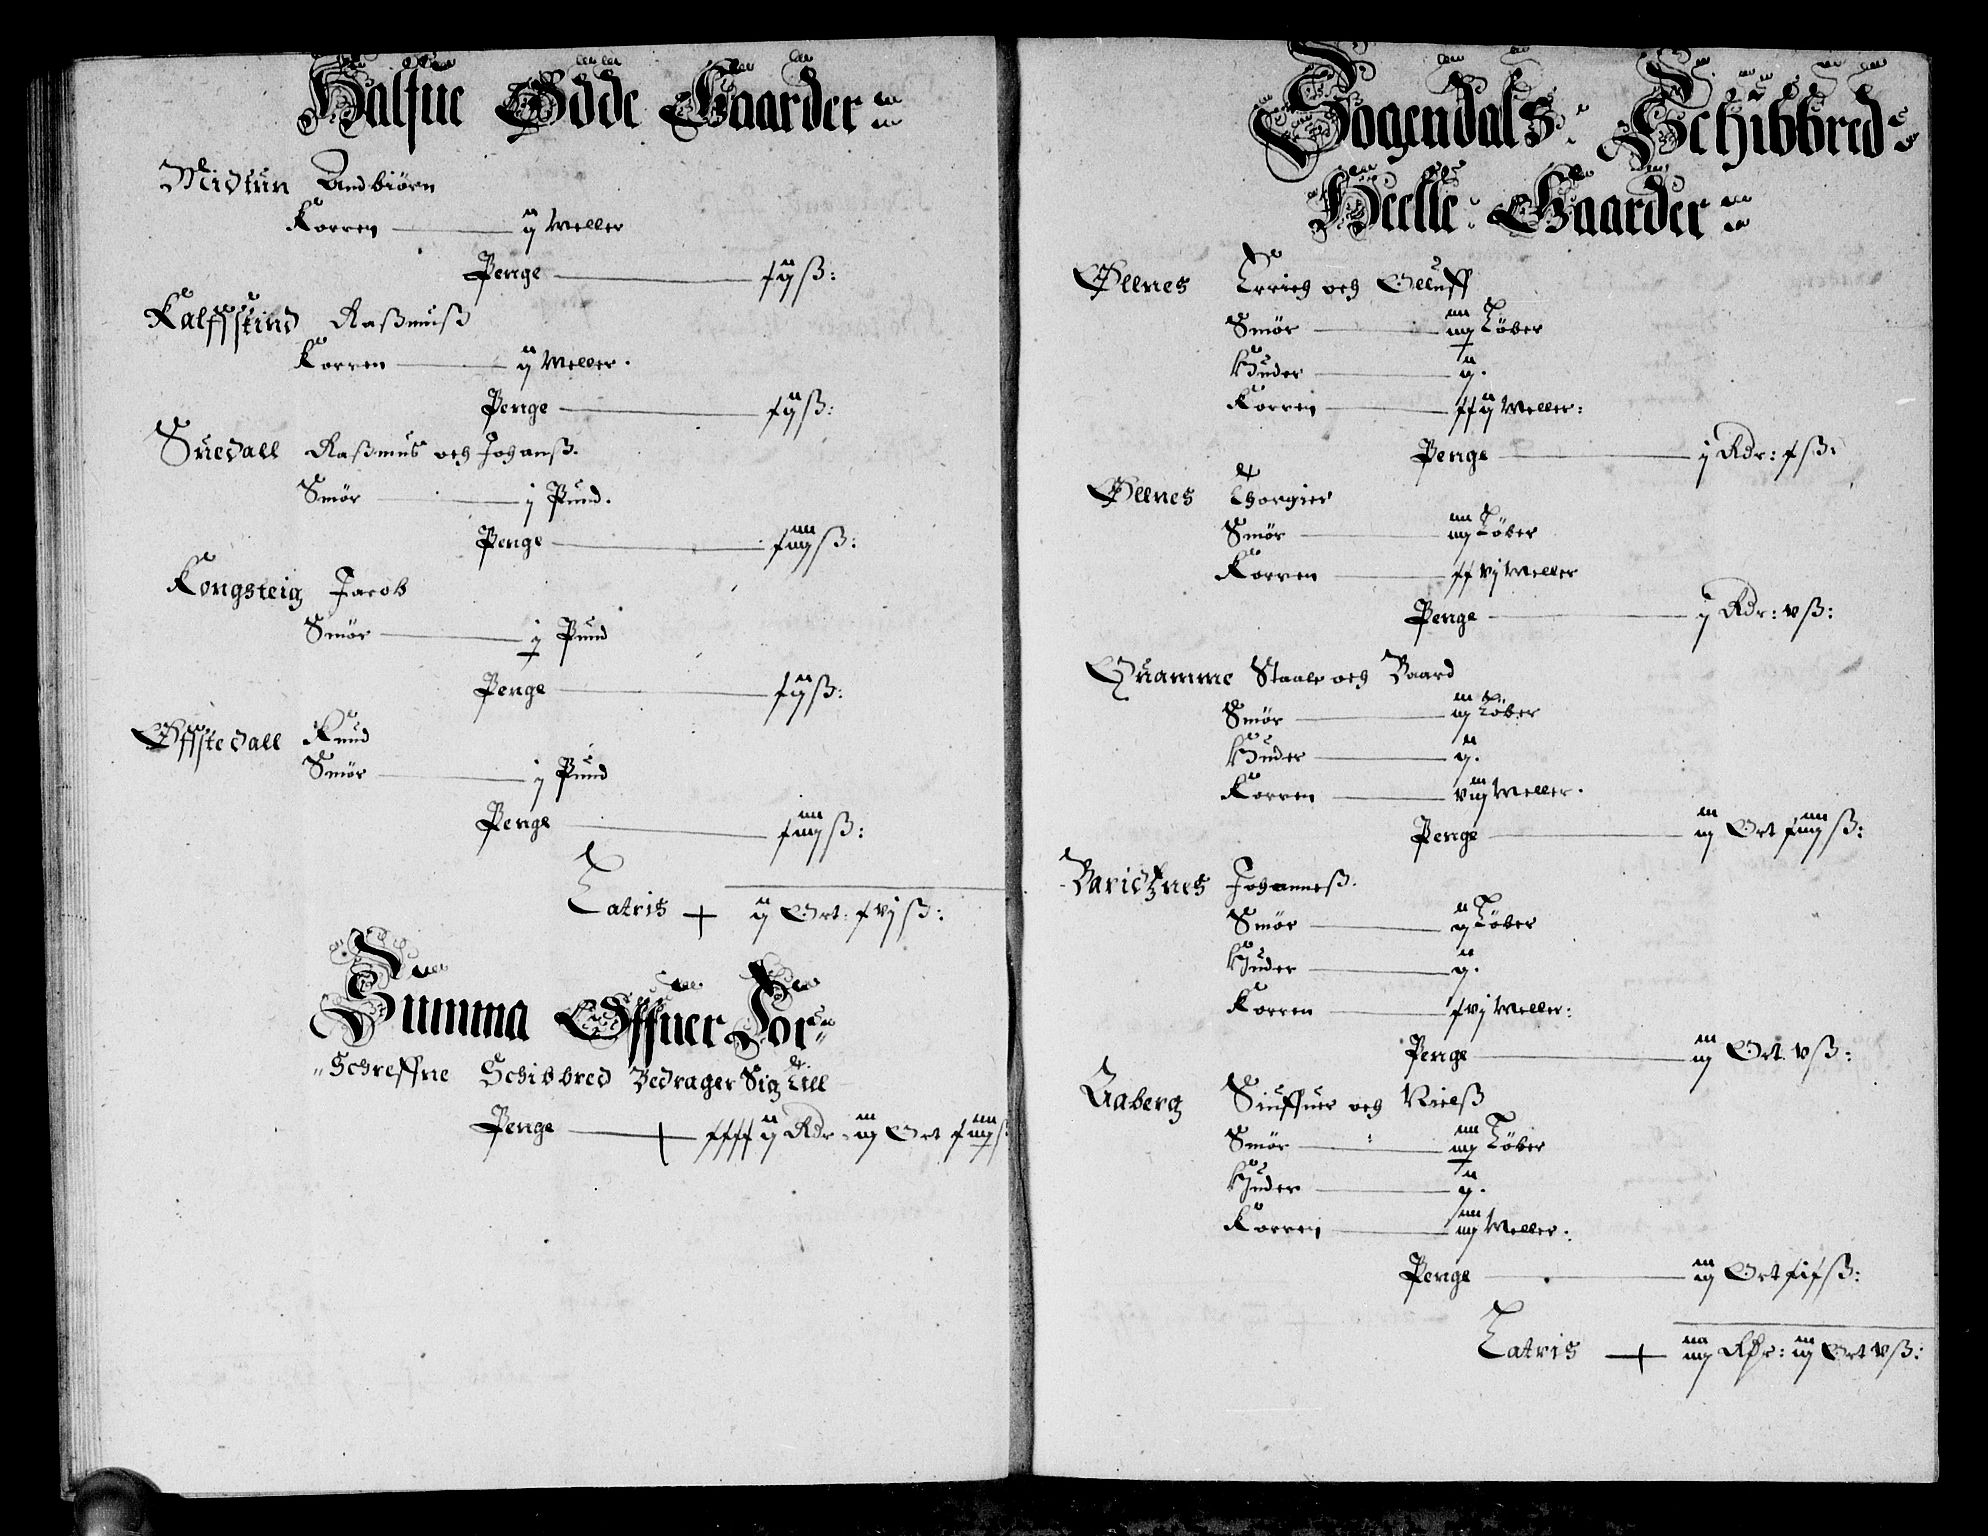 Halfue Øde Gaarder
Midtun Andbiørn
Korren ij Meller
Penge xij ß:
Kalffskind Raßmuß
Korren ij Meller.
Penge xij ß:
Suedall Raßmus och Johanß.
Smør j Pund.
Penge xiiij ß:
Kongsteig Jacob
Smør j Pund
Penge xij ß:
Øffstedall Knud
Smør j Pund
Penge xiiij ß:
Latris + ij Ort: xvj ß:
Summa Offuer For
Schreffne Schibbred Bedrager Sig Till
Penge + xxxxij Rdr iij Ort x
Sogendals Schibbred
Heelle Gaarder
Øllnes Erich och Olluff
Smør iiij Løber
Huder ij.
Korren xxij Meller:
Penge j Rdr: x ß:
Øllnes Thorgier
Smør iiij Løber
Korren xxvj Meller
Penge j Rdr: v ß:
Quamme Staale och Baard
Smør iij Løber
Huder ij.
Korren viij Meller.
Penge iij Ort xiiij ß:
Baridznes Johanneß.
Smør ij Løber
Huder ij.
Korren xvj Meller:
Penge iij Ort v ß:
Aaberg Siuffuer och Nielß
Smør iiij Løber
Huder ij.
Korren iiij Meller:
Penge iij Ort xix ß:
Latris + iiij Rdr: iij Ort v ß: